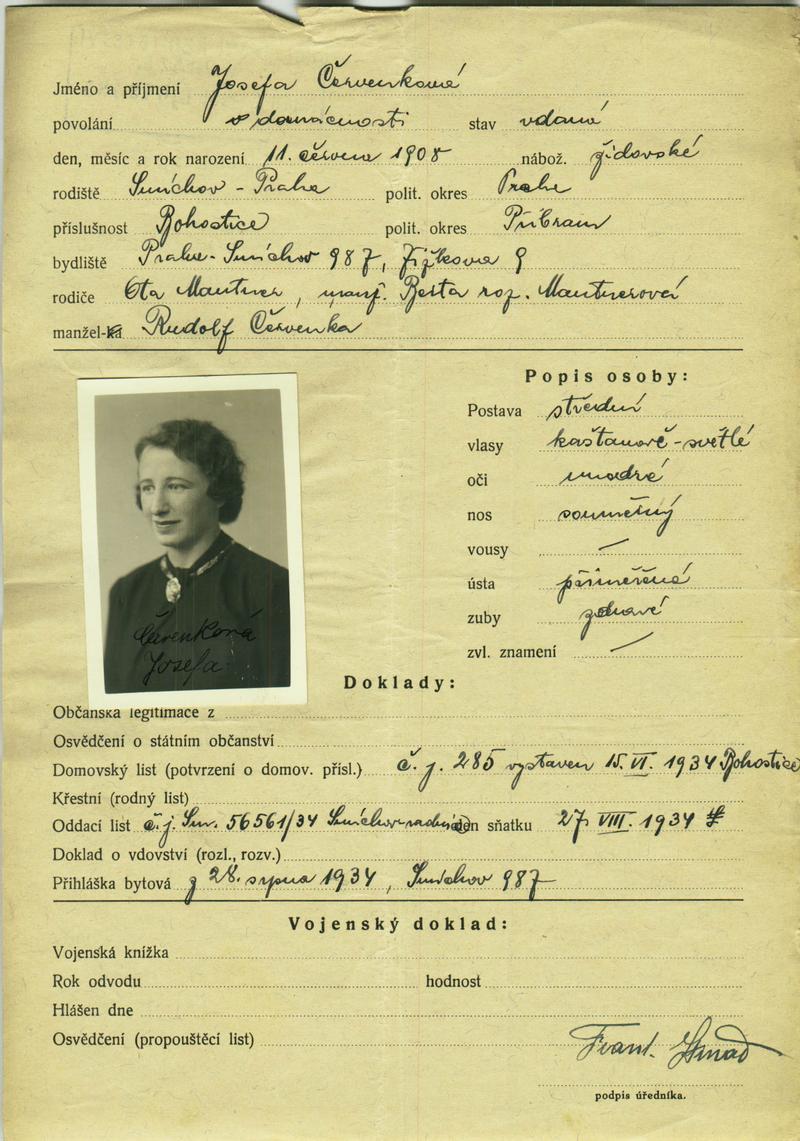 Jméno a příjmení Josefa Červenková
povolání v domácnosti stav vdaná
den, měsíc a rok narození 11. června 1908 nábož. židovské
rodiště Smíchov - Praha polit. okres Praha
příslušnost Bohostice polit. okres Příbram
bydliště Praha - Smíchov 987, Žižkova 9
rodiče Ota Mautner, manž. Berta roz. Mautnerová
manžel-ka Rudolf Červenka
Popis osoby:
Postava střední
vlasy kaštanově - světlé
oči modré
nos souměrný
vousy —
ústa přiměřené
zuby zdravé
zvl. znamení —
Červenková
Josefa
Doklady:
Občanská legitimace z
Osvědčení o státním občanství
Domovský list (potvrzení o domov. přísl.) č. j. 285 vystaven 15. VI. 1934 Bohostice
Křestní (rodný list)
Oddací list č. j. Sm. 56561/34 den sňatku 27 VIII. 1934
Doklad o vdovství (rozl., rozv.)
Přihláška bytová z 28. srpna 1934, Smíchov 987
Vojenský doklad:
Vojenská knížka
Rok odvodu hodnost
Hlášen dne
Osvědčení (propouštěcí list)
Frant.
podpis úředníka.